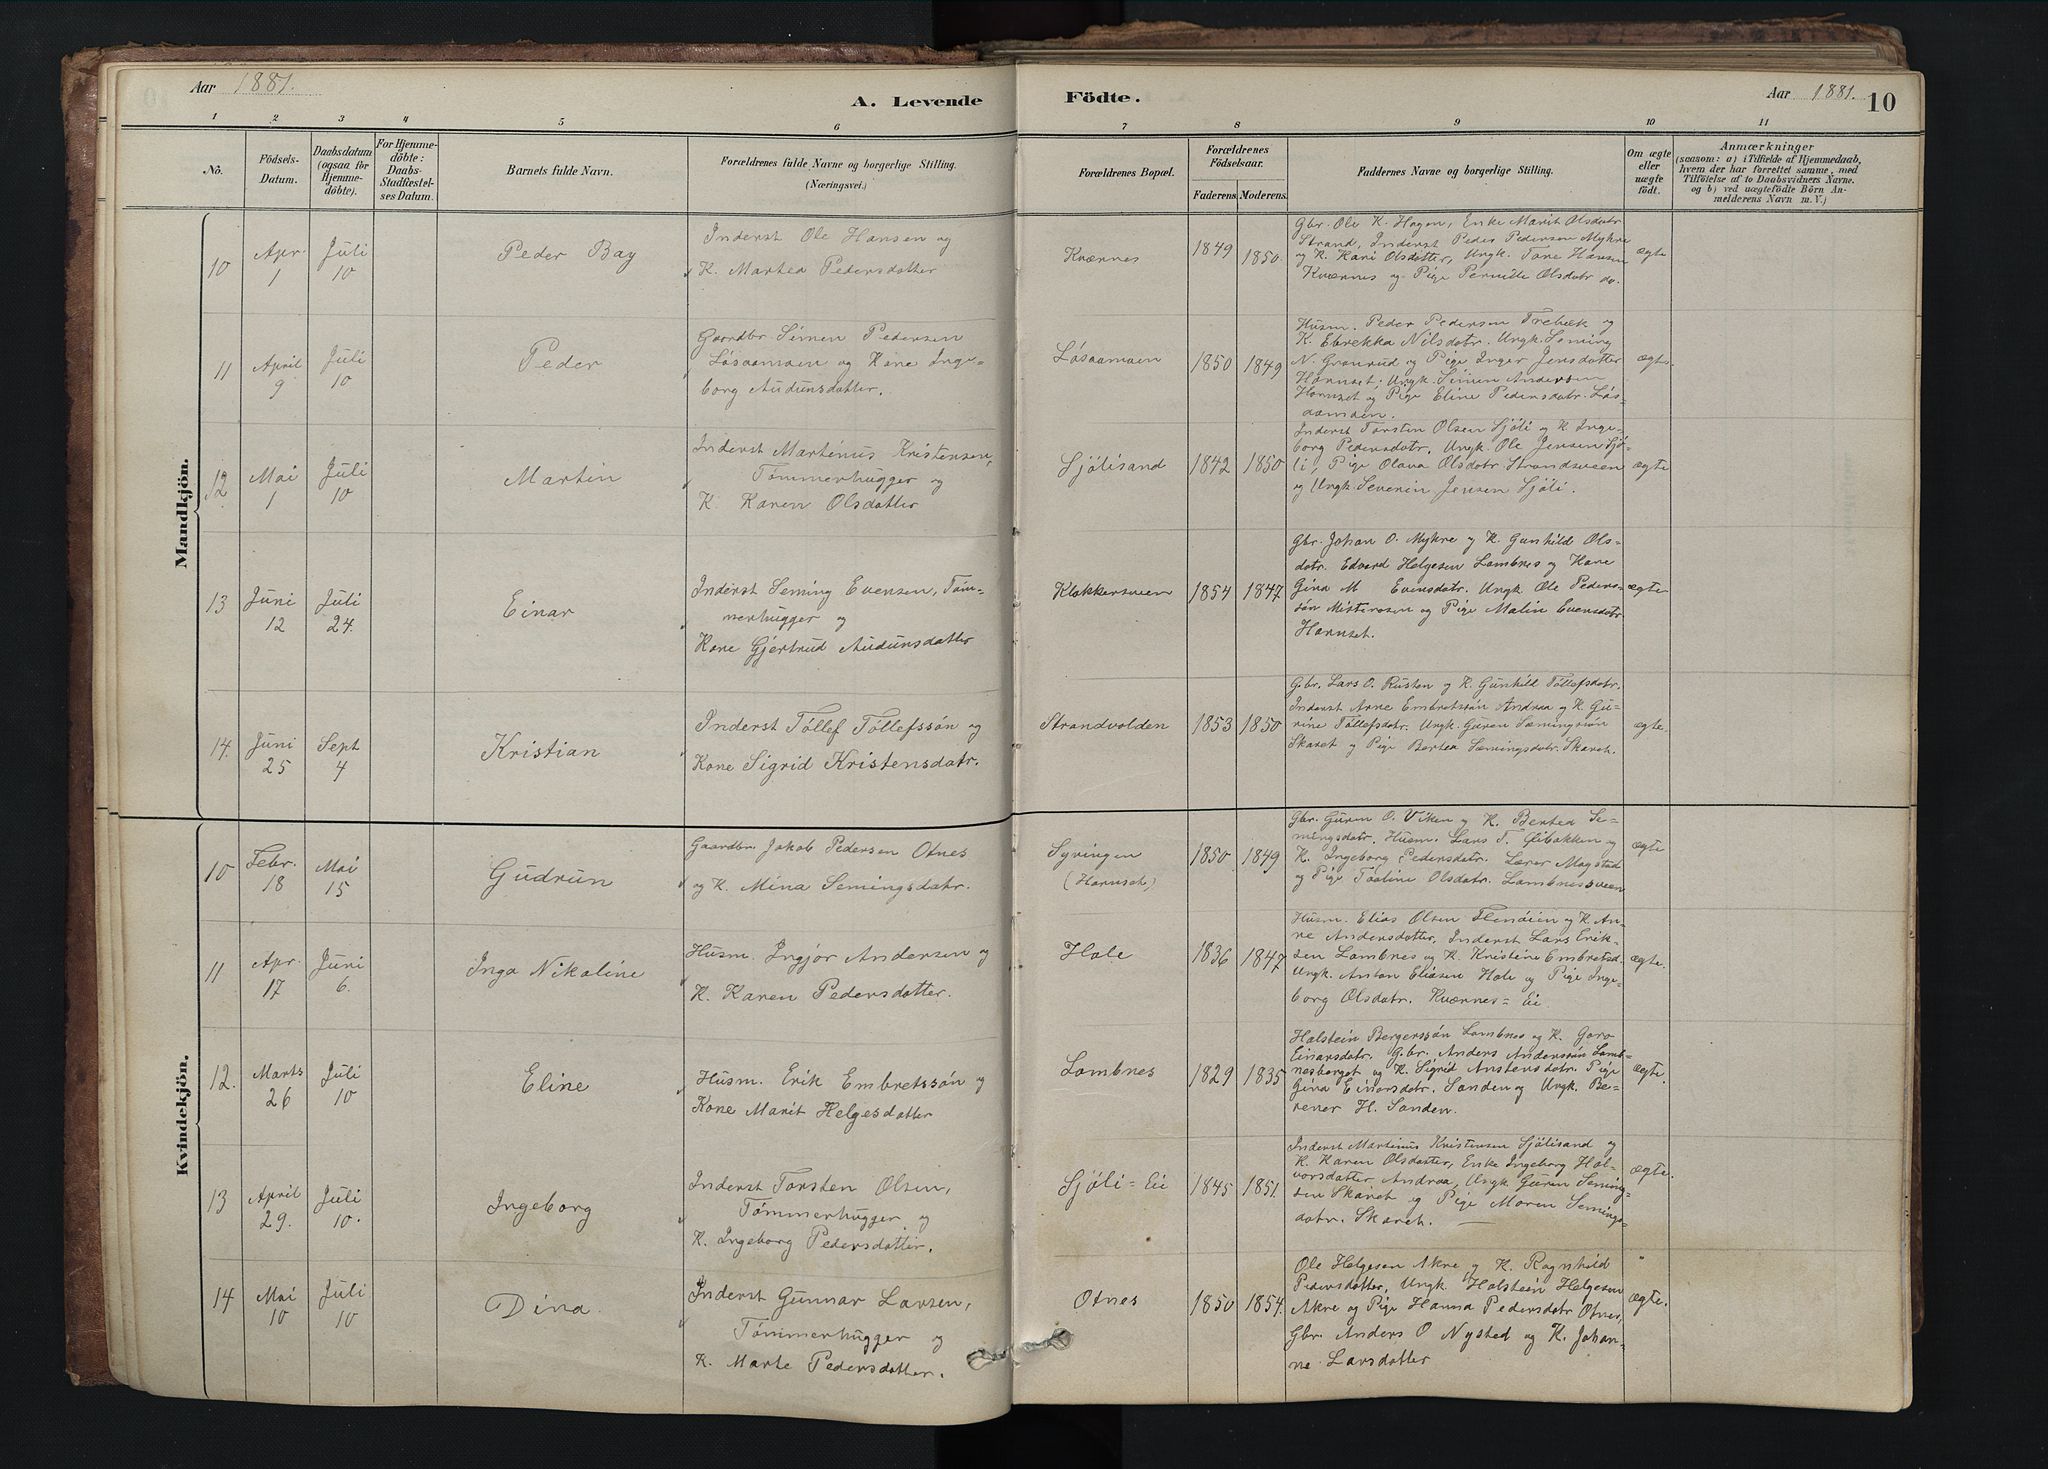 Aar 1881.
A. Levende Födte.
Aar 1881. 10
1 2 3 4 5 6 7 8 9 10 11
No.
Födsels-
Datum.
Daabsdatum
(ogsaa för
Hjemme-
döbte).
For Hjemme-
döbte:
Daabs-
Stadfæstel-
ses Datum.
Barnets fulde Navn.
Forældrenes fulde Navne og borgerlige Stilling.
(Næringsvei.)
Forældrenes Bopæl.
Forældrenes
Födselsaar.
Faderens. Moderens.
Faddernes Navne og borgerlige Stilling.
Om ægte
eller
uægte
födt.
Anmærkninger
(saasom: a) i Tilfælde af Hjemmedaab,
hvem der har forrettet samme, med
Tilföielse af to Daabsvidners Navne.
og b) ved uægtefödte Börn An-
melderens Navn m. V.)
Mandkjön.
10 Apr. 1 Juli 10 Peder Bay
Inderst Ole Hansen og
K. Martea Pedersdatter
Kværnes 1849 1850.
Gbr. Ole K. Hagen, Enke Marit Olsdatr
Strand, Inderst Peder Pedersen Mykre
og K. Kari Olsdatter, Ungk. Tore Hansen
Kværnes og Pige Pernille Olsdatr do.
ægte
11 April 9 Juli 10 Peder
Gaardbr. Simen Pedersen
Løsaamoen og Kone Inge-
borg Audunsdatter.
Løsaamoen 1850 1849
Husm. Peder Pedersen Trebæk og
K. Ebrekka Nilsdatr. Ungk. Seming
N. Granrud og Pige Inger Jensdatter
Hornset; Ungk. Simen Andersen
Hornset og Pige Eline Pedersdatr. Løs-
aamoen.
ægte.
12 Mai 1 Juli 10 Martin
Inderst Martinus Kristensen,
Tømmerhugger og
K. Karen Olsdatter
Sjølisand 1842 1850
Inderst Torsten Olsen Sjöli og K. Inge-
borg Pedersdatr, Ungk. Ole Jensen Sjö-
li, Pige Olava Olsdatr. Strandsveen
og Ungk. Severin Jensen Sjöli.
ægte
13 Juni 12 Juli 24. Einar
Inderst Seming Evensen, Töm-
merhugger og
Kone Gjertrud Audunsdatter
Klokkersveen 1854 1847
Gbr. Johan O. Mykre og K. Gunhild Ols-
datr. Edvard Helgesen Lombnes og Kone
Gina M Evensdatr. Ungk. Ole Peders-
søn Misterosen og Pige Malin Evensdatr.
Hornset.
ægte
14. Juni 25 Sept 4 Kristian
Inderst Töllef Töllefssön og
Kone Sigrid Kristensdatr.
Strandvolden 1853 1850
Gbr. Lars O. Rusten og K. Gunhill Töllefsdatr.
Inderst Arne Embretssön Andraa og K. Gu-
rine Töllefsdatr. Ungk. Guren Semingssön
Skaret og Pige Bertea Semingsdatr. Skaret.
ægte.
Kvindekjön.
10 Febr. 18 Mai 15 Gudrun
Gaardbr. Jakob Pedersen Otnes
og K. Mina Semingsdatr.
Syringen
(Hornset) 1850 1849
Gbr. Guren O. Viken og K. Bertea Se-
mingsdatr, Husm. Lars T. Glibakken og
K. Ingeborg Pedersdatr. Lærer Magstad
og Pige Taaline Olsdatr. Lombnessveen
ægte
11 Apr. 17 Juni 6. Inga Nikoline
Husm. Ingjör Andersen og
K. Karen Pedersdatter.
Hole 1836 1847
Husm. Elias Olsen Flenöien og K. An-
ne Andersdatter, Inderst Lars Erik-
sen Lombnes og K. Kristine Embretsd.
Ungk. Anton Eliasen Hole og Pige Inge-
borg Olsdatr. Kværnes-Ei
ægte.
12. Marts 26 Juli 10 Eline
Husm. Erik Embretssön og
Kone Marit Helgesdatter
Lombnes 1829 1835
Halstein Bergerssön Lombnes og K. Goro
Einarsdatr. Gbr. Anders Anderssön Lomb-
nesberget og K. Sigrid Anstensdatr. Pige
Gina Einarsdatr. Sanden og Ungk. Be-
rener H. Sanden.
ægte.
13 April 29. Juli 10. Ingeborg
Inderst Torsten Olsen,
Tömmerhugger og
K. Ingeborg Pedersdatter.
Sjöli-Ei 1845 1851.
Inderst Martinus Kristensen Sjölisand og
K. Karen Olsdatter, Enke Ingeborg Hal-
vorsdatter Andraa, Ungk Guren Seming-
sen Skaret og Pige Maren Semings-
datr. Skaret.
ægte.
14 Mai 10 Juli 10 Dina.
Inderst Gunnar Larsen,
Tömmerhugger og
K. Marte Pedersdatter.
Otnes 1850 1854.
Ole Helgesen Akre og K. Ragnhild
Pedersdatter, Ungk. Halstein Helgesen
Akre og Pige Hanna Pedersdatr Otnes,
Gbr. Anders O Nysted og K. Johan-
ne Larsdatter
ægte.